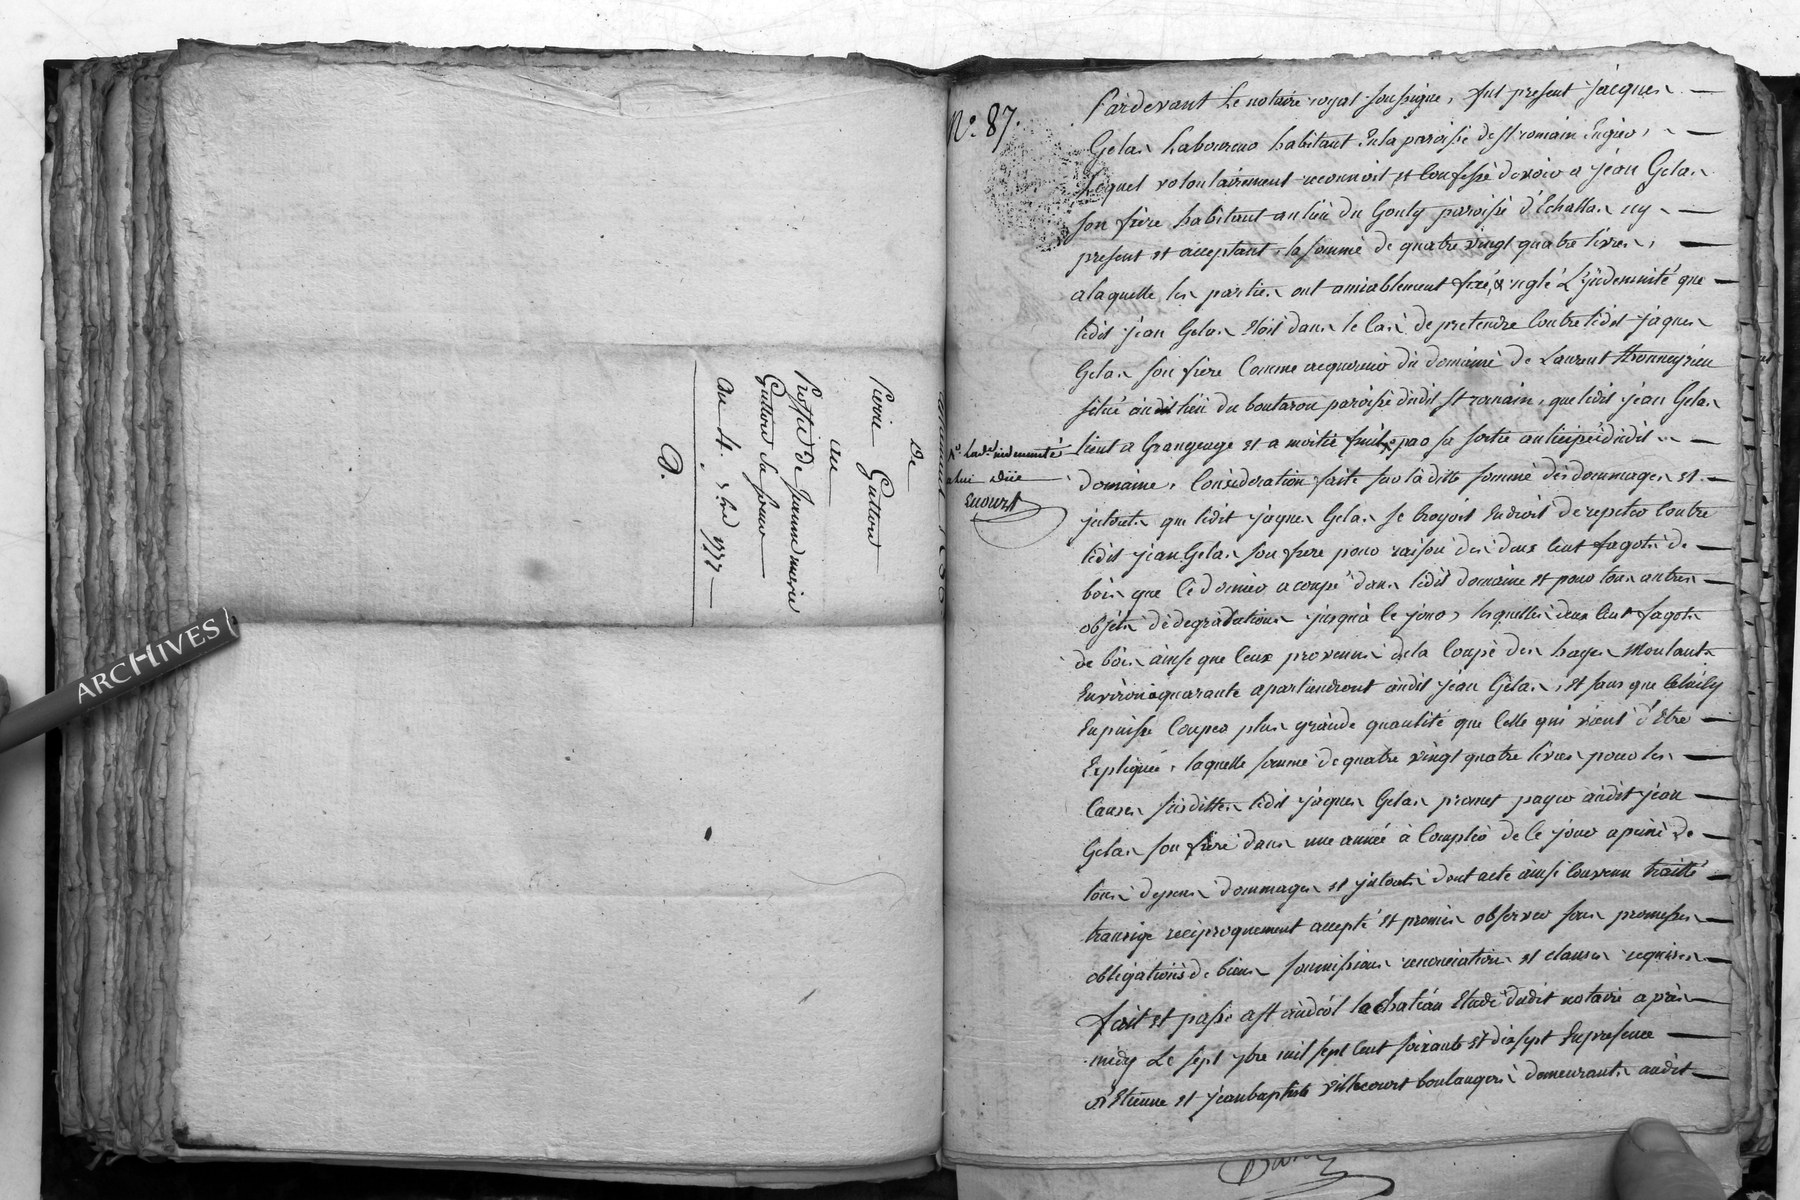 De
Pierre Guttou
au
Proffit de Jeanne marie
Guttou sa soeur
Du 4. 7bre 1777
D.
ARCHIVES
N.° 87.
Pardevant Le notaire royal soussigné, fut present jacques
Gelas Laboureur habitant En la paroisse de St romain Engier,
Lequel volontairement reconnoit et Confesse devoir a jean Gelas
son frere habitant au lieu du Gouty paroisse d'Echallas icy
present et acceptant, la somme de quatre vingt quatre livres,
a laquelle les parties ont amiablement fixé, & reglé L'jndemnité que
ledit jean Gelas étoit dans le Cas de pretendre Contre ledit jaques
Gelas son frere Comme acquereur du domaine de Laurent
situé audit lieu du boutarou paroisse dudit St romain, que ledit jean Gelas
tient a Grangeage et a moitié fruits par sa sortie anticipée dudit
domaine, Considération faite sur la ditte somme des dommages et
jnterets que ledit jaques Gelas se Croyoit En droit de repeter Contre
ledit jean Gelas son frere pour raison des deux Cent fagots de
bois que Ce dernier a coupé dans ledit domaine et pour tous autres
objets de degradations jusqu'a Ce jour, lesquelles deux Cent fagots
de bois ainsi que Ceux provenus de la Coupe des hayes Montants
Environ a quarante apartiendront audit jean Gelas, et sans que
En puisse Couper plus grande quantité que Celle qui vient d'Etre
Expliquée, laquelle somme de quatre vingt quatre livres pour les
Causes susdittes ledit jaques Gelas promet payer audit jean
Gelas son frere dans une année à Compter de Ce jour a peine de
tous depens dommages et jnterets dont acte ainsi Convenu traitté
transigé reciproquement accepté et promis observer sous promesses
obligations de biens soumissions renonciations et clauses requises
fait et passé a St andéol le Chateau Etude dudit notaire aprés
midy Le sept 7bre mil sept Cent soixante et dix sept En presence
Sr Etienne et jean baptiste villecourt boulangers demeurants audit
Pr Lad.e indemnité
a lui düe